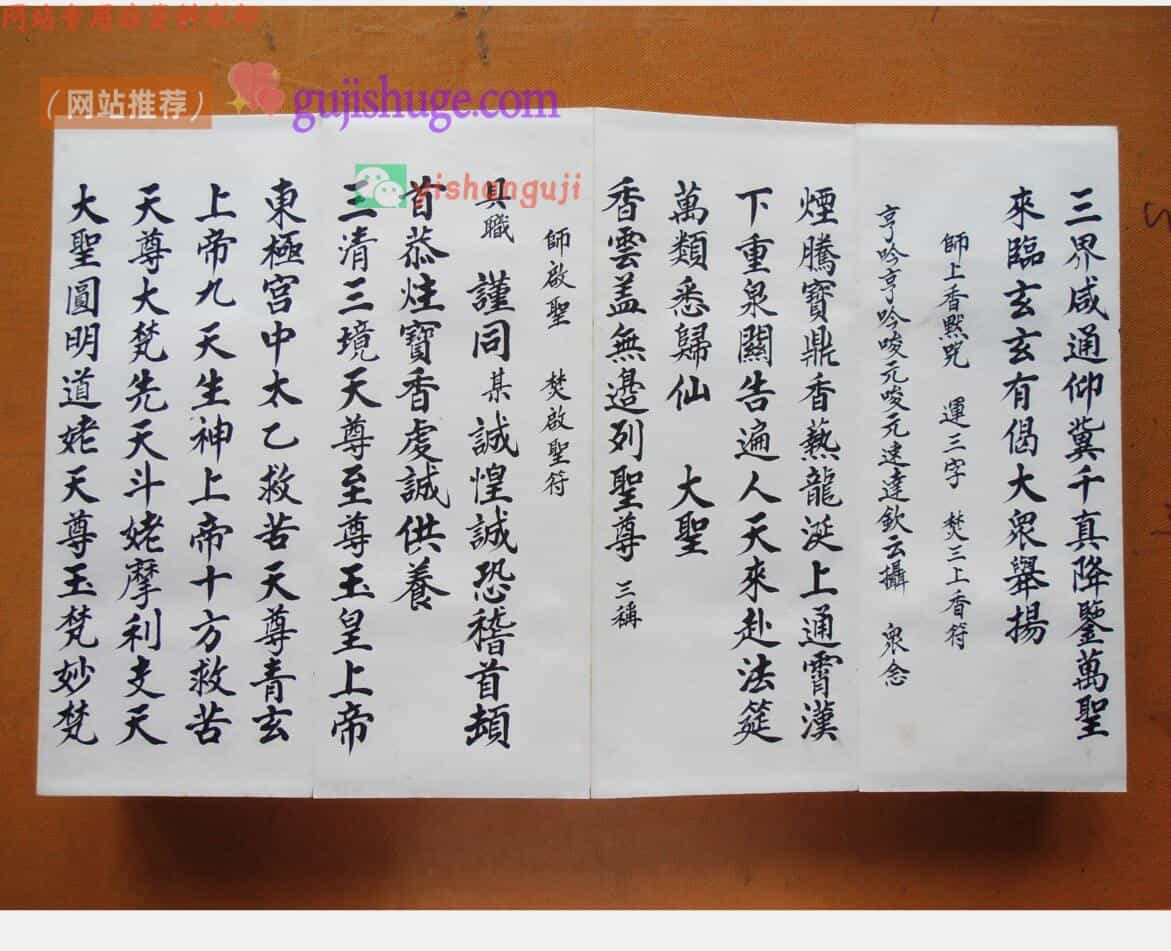 （网站推荐）
gujishuge.com
yishanguji
三界咸通仰冀千真降鑒萬聖
來臨玄玄有偈大眾舉揚
師上香默咒 運三字 焚三上香符
亨吟亨吟唆元唆元逮達欽云攝 眾念
煙騰寶鼎香爇龍涎上通霄漢
下重泉關告遍人天來赴法筵
萬類悉歸仙 大聖
香雲蓋無邊列聖尊 三稱
師啟聖 焚啟聖符
具職 謹同某誠惶誠恐稽首頓
首恭炷寶香虔誠供養
三清三境天尊至尊玉皇上帝
東極宮中太乙救苦天尊青玄
上帝九天生神上帝十方救苦
天尊大梵先天斗姥摩利支天
大聖圓明道姥天尊玉梵妙梵